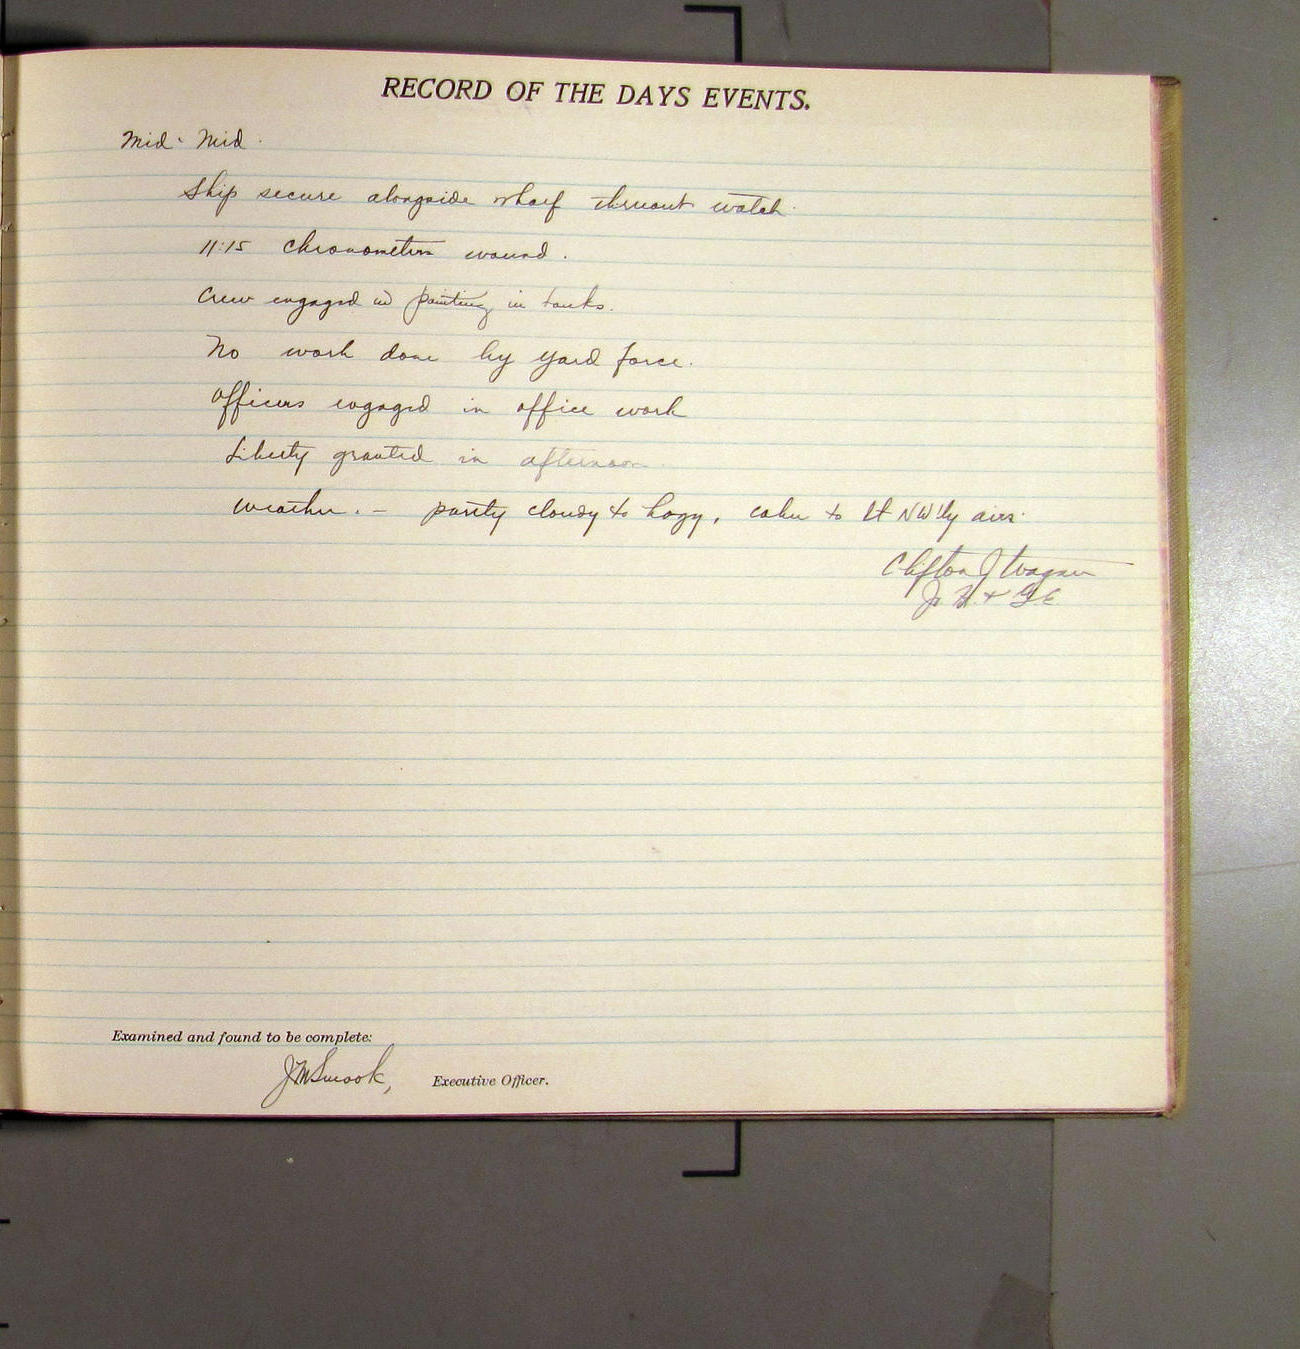 RECORD OF THE DAYS EVENTS.
Mid - Mid.
Ship secure alongside wharf thruout watch.
11:15 Chronometers wound.
Crew engaged in painting in tanks.
No work done by yard force.
Officers engaged in office work
Liberty granted in afternoon.
Weather. - partly cloudy to hazy, calm to lt NW'ly airs.
Clifton J Wagner
Jr H. + G E
Examined and found to be complete:
J M Smook, Executive Officer.